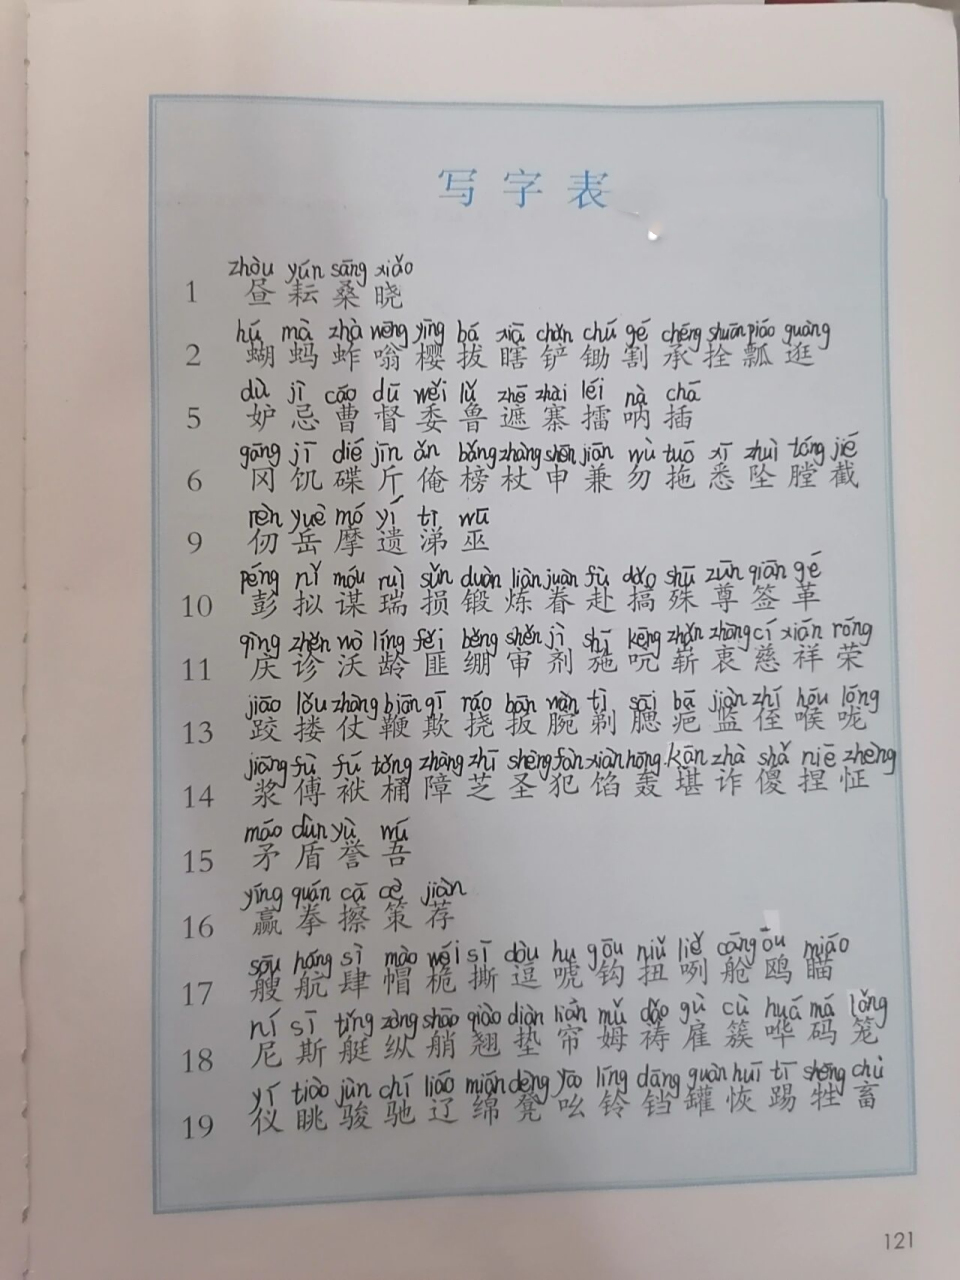 写字表
zhòu yún sāng xiǎo
1 昼 耘 桑 晓
hú mà zhà wēng yīng bá xiā chǎn chú gé chéng shuān piáo guàng
2 蝴 蚂 蚱 嗡 樱 拔 瞎 铲 锄 割 承 拴 瓢 逛
dù jì cáo dū wěi lǔ zhē zhài léi nà chā
5 妒 忌 曹 督 委 鲁 遮 寨 擂 呐 插
gāng jī dié jīn ǎn bǎng zhàng shēn jiān wù tuō xī zhuì táng jié
6 冈 饥 碟 斤 俺 榜 杖 申 兼 勿 拖 悉 坠 膛 截
rèn yuè mó yí tì wū
9 仞 岳 摩 遗 涕 巫
péng nǐ móu ruì sǔn duàn liàn juàn fù gǎo shū zūn qiān gé
10 彭 拟 谋 瑞 损 锻 炼 眷 赴 搞 殊 尊 签 革
qìng zhěn wò líng fěi bēng shěn jì shī kēng zhǎn zhōng cí xián róng
11 庆 诊 沃 龄 匪 绷 审 剂 施 吭 崭 衷 慈 祥 荣
jiāo lǒu zhàng biān qī ráo bān wàn tì sāi bā jiān zhí hóu lóng
13 跤 搂 仗 鞭 欺 挠 扳 腕 剃 腮 疤 监 侄 喉 咙
jiāng fù fú tǒng zhàng zhī shèng fàn xiàn hōng kān zhà shǎ niē zhèng
14 浆 傅 袱 桶 障 芝 圣 犯 馅 轰 堪 诈 傻 捏 怔
máo dùn yù wú
15 矛 盾 誉 吾
yíng quán cā cè jiàn
16 赢 拳 擦 策 荐
sōu háng sì mào wéi sī dòu hu gōu niǔ liě cāng ōu miáo
17 艘 航 肆 帽 桅 撕 逗 唬 钩 扭 咧 舱 鸥 瞄
ní sī tǐng zòng shāo qiào diàn lián mǔ dǎo gù cù huá mǎ lǒng
18 尼 斯 艇 纵 艄 翘 垫 帘 姆 祷 雇 簇 哗 码 笼
yí tiào jùn chí liáo mián dèng yāo líng dāng guàn huī tī shēng chù
19 仪 眺 骏 驰 辽 绵 凳 吆 铃 铛 罐 恢 踢 牲 畜
121